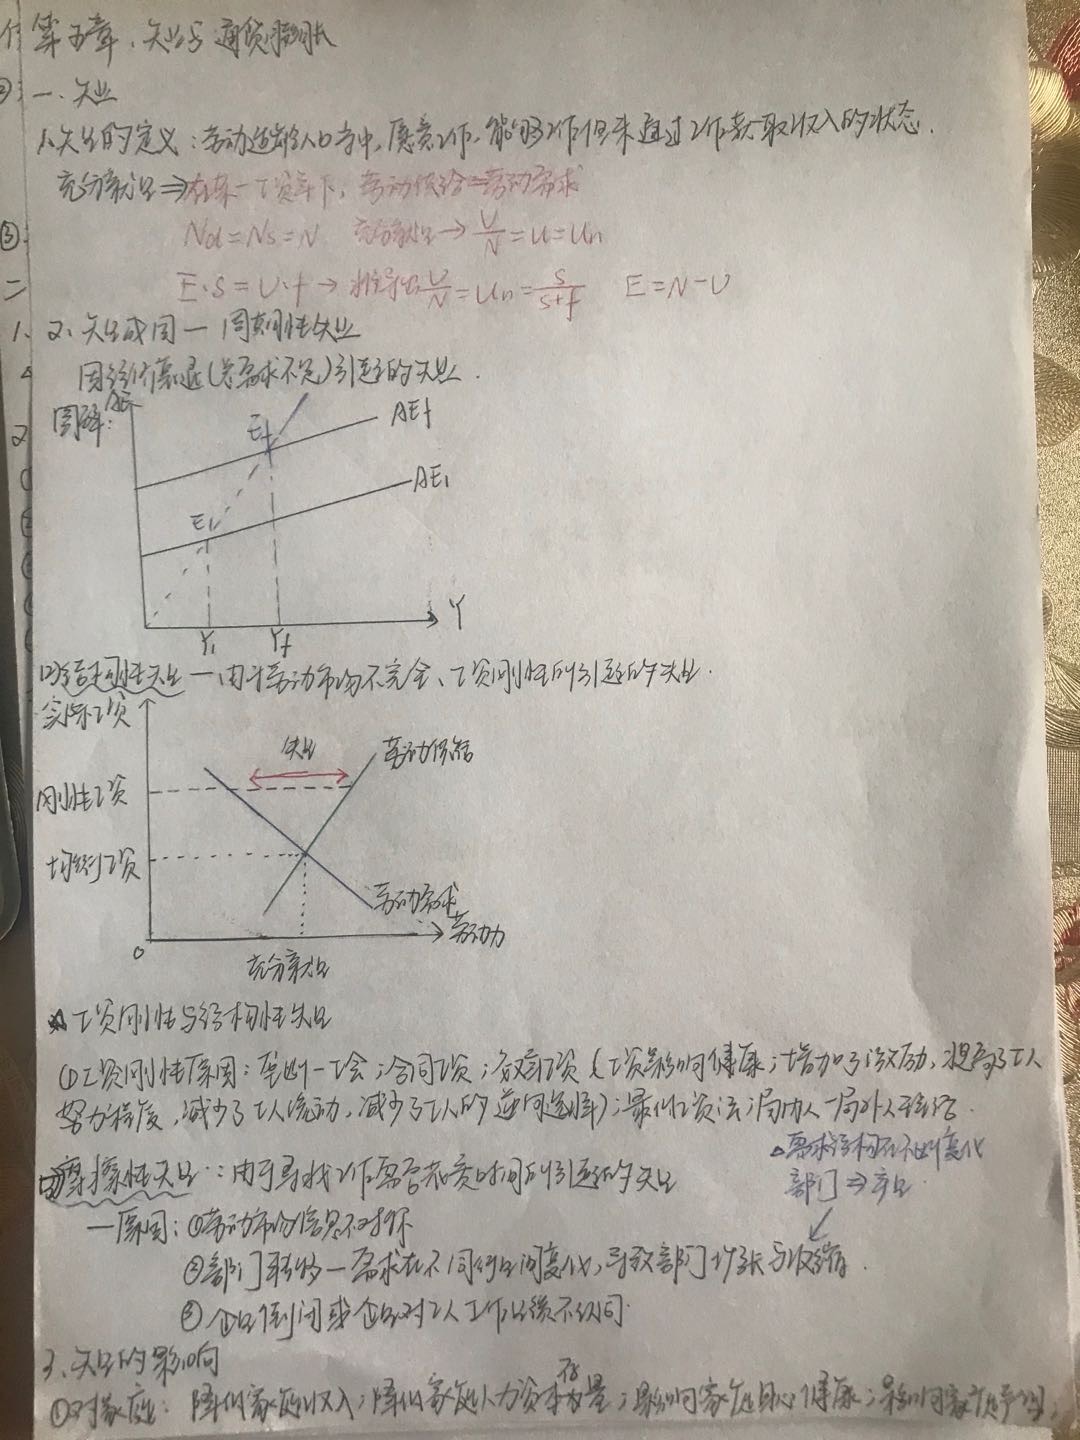 第五章、失业与通货膨胀
一、失业
1、失业的定义：劳动适龄人口当中，愿意工作，能够工作但未通过工作获取收入的状态.
充分就业⇒在某一工资率下，劳动供给=劳动需求
Nd=Ns=N 充分就业→U/N=u=un
E·S=U·f→推导出U/N=un=s/(s+f) E=N-U
2、失业成因一周期性失业
因经济衰退(总需求不足)引起的失业.
图解: AE
Ef
AEf
AE1
E1
Y1 Yf Y
(2)结构性失业—由于劳动市场不完全、工资刚性所引起的失业.
实际工资
失业 劳动供给
刚性工资
均衡工资
劳动需求
劳动力
0
充分就业
工资刚性与结构性失业
(1)工资刚性原因：垄断—工会；合同工资；效率工资(工资影响健康；增加了激励，提高了工人
努力程度，减少了工人流动，减少了工人的逆向选择)；最低工资法；局内人—局外人理论.
△需求结构在不断变化
部门⇒产业
摩擦性失业：由于寻找工作需要花费时间所引起的失业
—原因：①劳动市场信息不对称
②部门转移—需求在不同行业间变化，导致部门扩张与收缩.
③企业倒闭或企业对工人工作业绩不认同.
3、失业的影响
①对家庭：降低家庭收入；降低家庭人力资本存量；影响家庭身心健康；影响家庭声望；